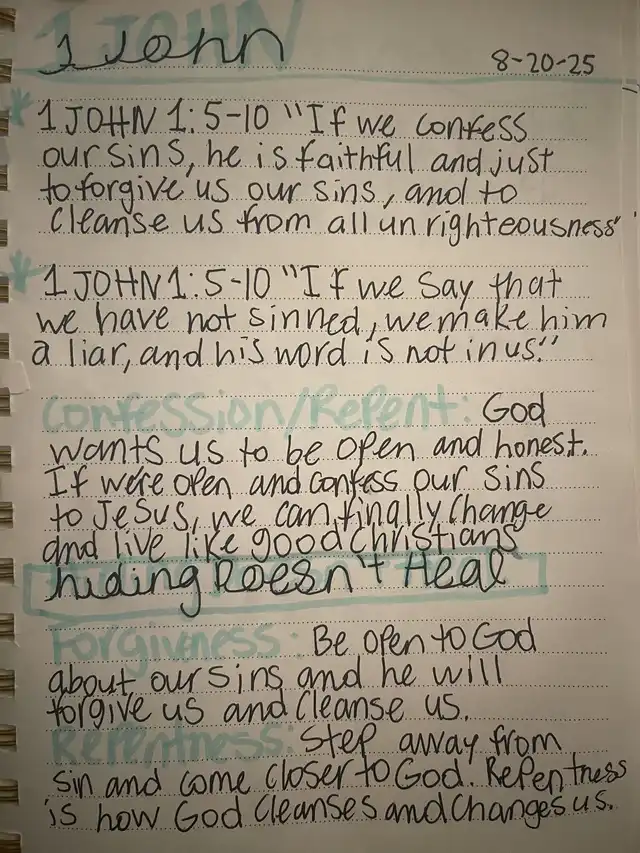 1 John
8-20-25
1 JOHN 1:5-10 "If we confess
our sins, he is faithful and just
to forgive us our sins, and to
cleanse us from all unrighteousness"
1 JOHN 1:5-10 "If we say that
we have not sinned, we make him
a liar, and his word is not in us."
Confession/Repent: God
wants us to be open and honest.
If we're open and confess our sins
to Jesus, we can finally change
and live like good Christians
hiding Doesn't Heal
Forgivness: Be open to God
about our sins and he will
forgive us and cleanse us.
Repentness: Step away from
sin and come closer to God. Repentness
is how God cleanses and changes us.